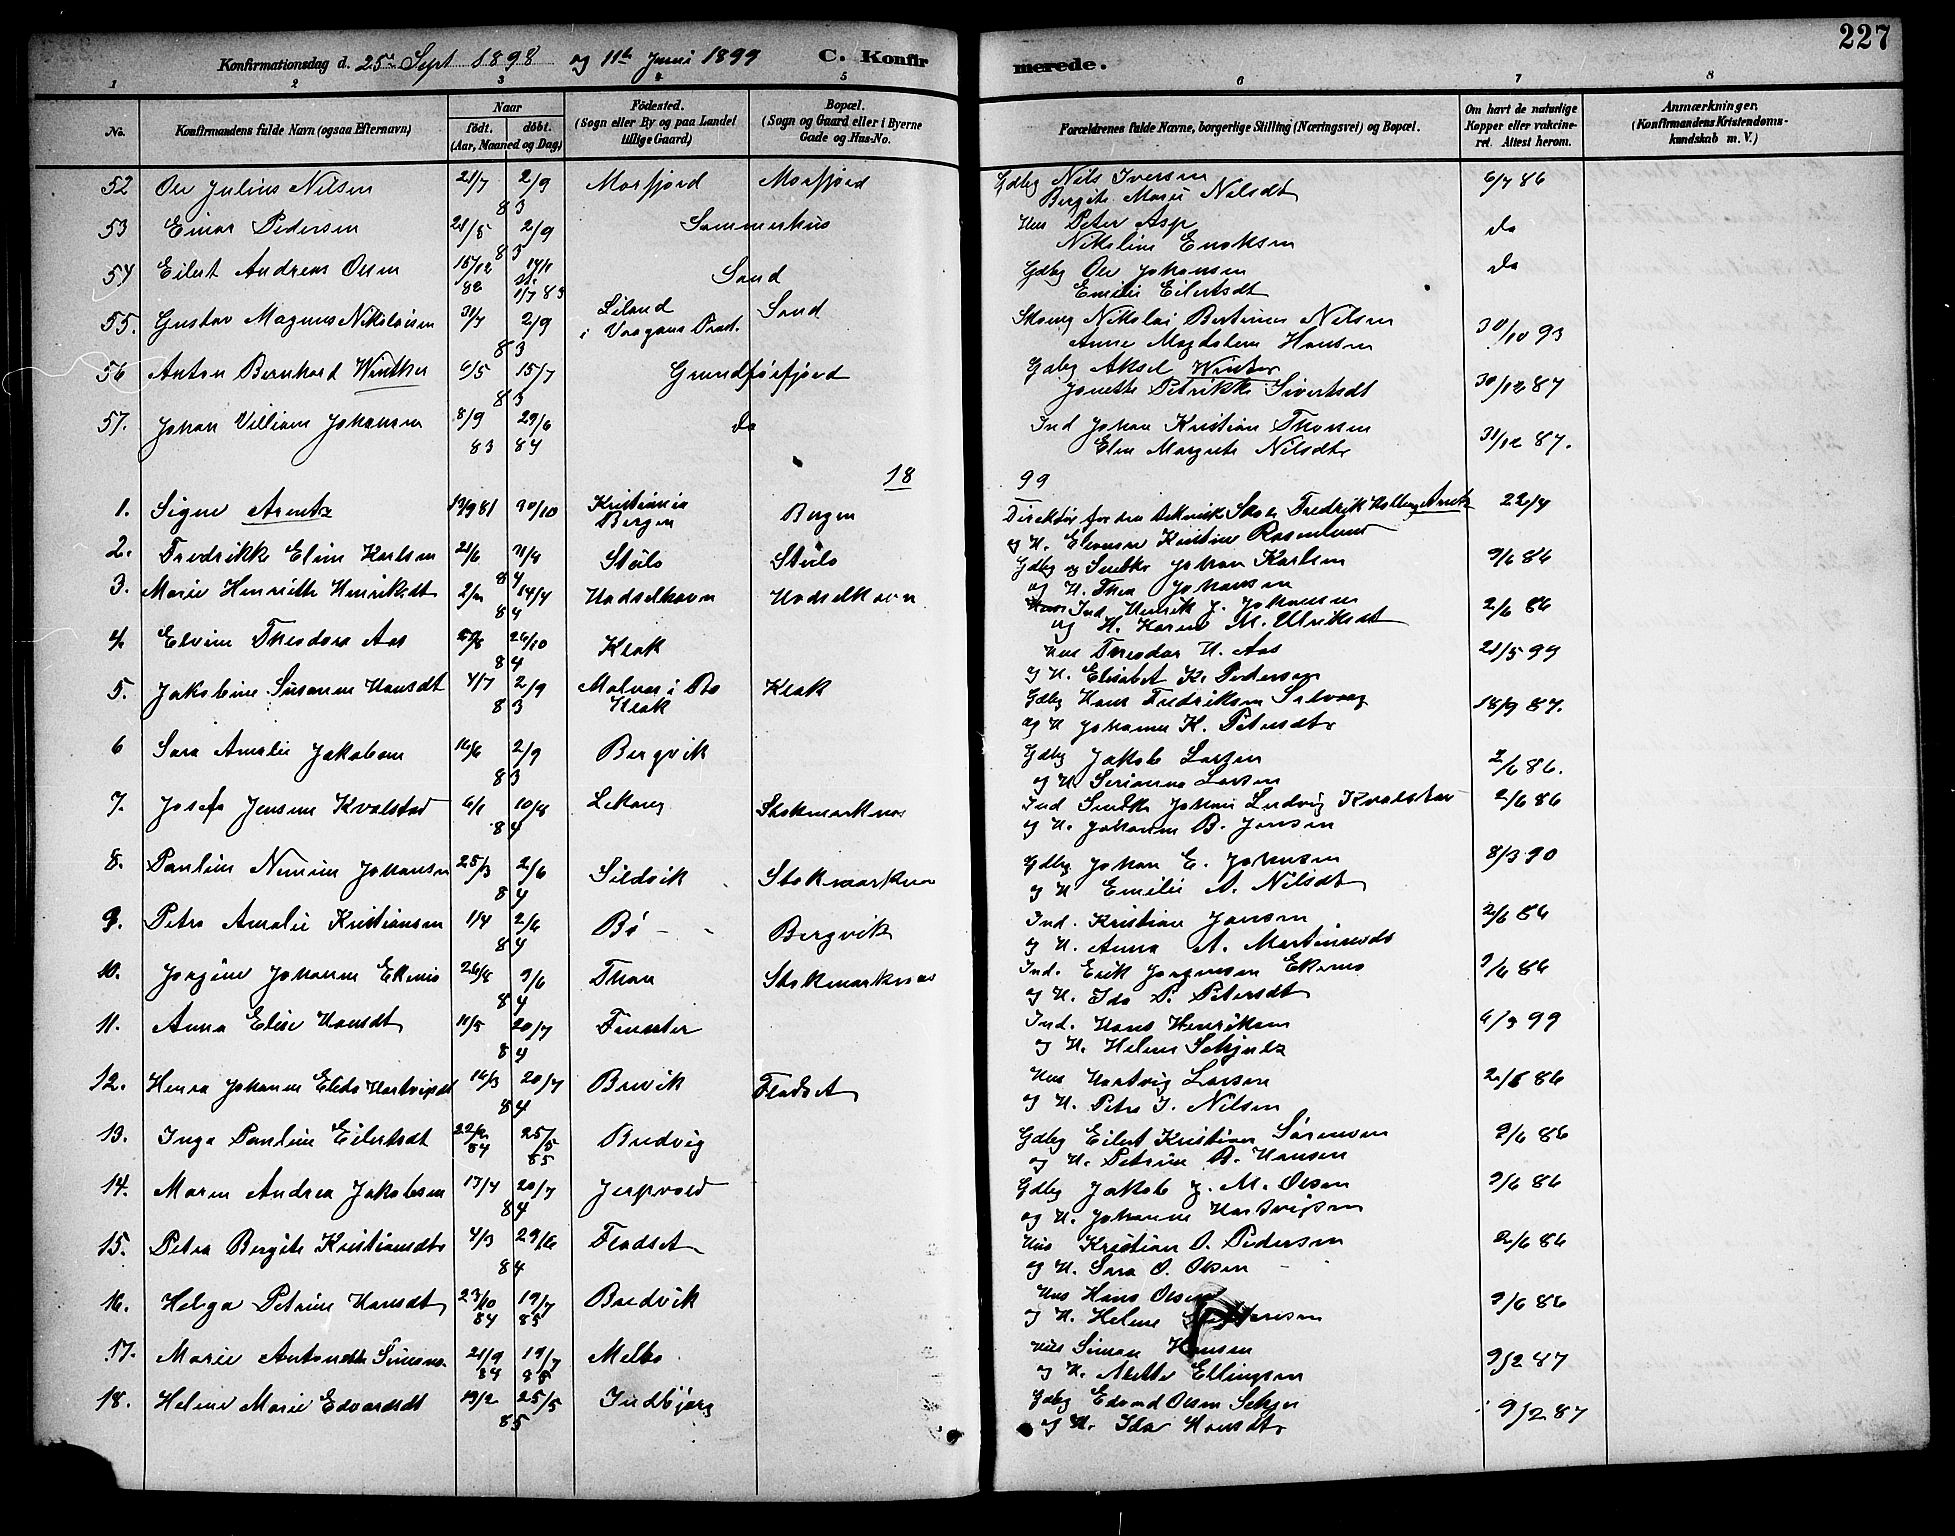 227
Konfirmationsdag d. 25de Sept 1898 og 11te Juni 1899 C. Konfirmerede.
1 2 3 4 5 6 7 8
No. Konfirmandens fulde Navn (ogsaa Efternavn) Naar födt. döbt. (Aar, Maaned og Dag) Födested. (Sogn eller By og paa Landet tillige Gaard) Bopæl. (Sogn og Gaard eller i Byerne Gade og Hus-No. Forældrenes fulde Navne, borgerlige Stilling (Næringsvei) og Bopæl. Om havt de naturlige Kopper eller vakcineret. Attest herom. Anmærkninger. (Konfirmandens Kristendomskundskab m. V.)
52 Ole Julius Nilsen 21/7 2/9 83 Morfjord Morfjord Gdbg Nils Iversen 6/7 86
Bergite Marie Nilsdt
53 Einar Pedersen 21/5 2/9 83 Sommerhus Hus Peter Asp do
Nikoline Enoksen
54 Eilert Andreas Olsen 15/12 82 1/7 83 Sand Gdbg Ole Johansen do
Emilie Eilertsdt
55. Gustav Magnus Nikolaisen 31/7 2/9 83 Liland i Vaagans Præst. Sand Nikolai Bertinus Nilsen 30/10 93
Anne Magdalena Hansen
56 Anton Bernhard Winther 6/5 15/7 83 Grundførfjord Gdbg Aksel Winter 30/12 87
Jonette Petrikke Sivertsdt
57. Johan Villiam Johansen 8/9 83 29/6 84 do Ind Johan Kristian Thorsen 31/12 87.
Elen Margrete Nilsdtr
18 99
1. Signe Arentz 13/9 81 30/10 Kristiania Bergen Bergen Direktør for den tekniske Skole Fredrik Holberg Arentz 22/4
og H. Kristine Rosenlund
2. Fredrikke Eline Karlsen 21/6 84 Støilo Støilo Gdbg og Snedker Johan Karlsen 9/6 86
og H. Thea Johansen
3. Marie Henriette Henriksdt 14/4 84 Hadselhavn Hadselhavn Ind. Henrik J. Johansen 2/6 86
og H. Karen M. Ulriksdt
4. Elvine Theodora Aas 26/10 84 Klak Hus Theodor H. Aas 21/5 99
og H. Elisabet K. Pedersen
5. Jakobine Susanne Hansdt 4/7 2/9 83 Malnes i Bø Klak Klak Gdbg Hans Fredriksen 18/9 87.
og H Johanna K. Petersdtr
6 Sara Amalie Jakobsen 16/6 2/9 83 Bergvik Gdbg Jakob Larsen 2/6 86.
og H. Serianna Larsen
7. Josefa Jensine Kvalstad 6/1 10/8 84 Lekang Stokmarknæs Ind Snedk Johan Ludvig Kvalstad 2/6 86
og H. Johanna B. Jensen
8. Pauline Numine Johansen 25/3 2/6 84 Sildvik Stokmarknæs Gdbg Johan E. Johnsen 8/3 90
og H Emilie A. Nilsdt
9. Petra Amalie Kristiansen 1/4 2/6 84 Bø Bergvik Ind. Kristian Jansen 2/6 86
og H. Anna A. Martinusdt
10. Jorgine Johanne Ekrenæs 26/8 9/6 84 Thon Stokmarknæs Ind. Erik Jorgensen Ekrenæs 9/6 86
og H. Ida P. Petersdt
11. Anna Elise Hansdt 11/5 20/7 84 Ind. Hans Henriksen 6/3 99
og H. Helene Schjulz
12. Henra Johanne Hartvigsdt 16/3 20/7 84 Brevik Fladset Hus Hartvig Larsen 2/6 86
og H. Petra J. Nilsen
13. Inga Pauline Eilertsdt 84 25/5 85 Bredvig Gdbg Eilert Kristian Sørensen 9/6 86
og H. Petrine B. Hansen
14. Maren Andrea Jakobsen 17/4 20/7 84 Jerpvold Gdbg Jakob J. M. Olsen 9/6 86
og H. Johanne Hartvigsen
15. Petra Bergite Kristiansdtr 4/3 29/6 84 Fladset Hus Kristian O. Pedersen 2/6 86
og H. Sara O. Olsen
16. Helga Petrine Hansdt 23/10 84 19/7 85 Bredvik Hus Hans Olsen 9/6 86
og H. Helene
17. Marie Antonette 21/9 84 19/7 85 Melbo Hus Simon Hansen 9/2 87
og H. Mette Ellingsen
18. Helene Marie Edvardsdt 19/2 25/5 85 Indbjørg Gdbg Edvard Olsen 9/2 87
og H. Ida Hansdtr